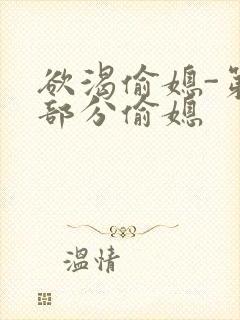 欲渴偷媳-第
部分偷媳
温情